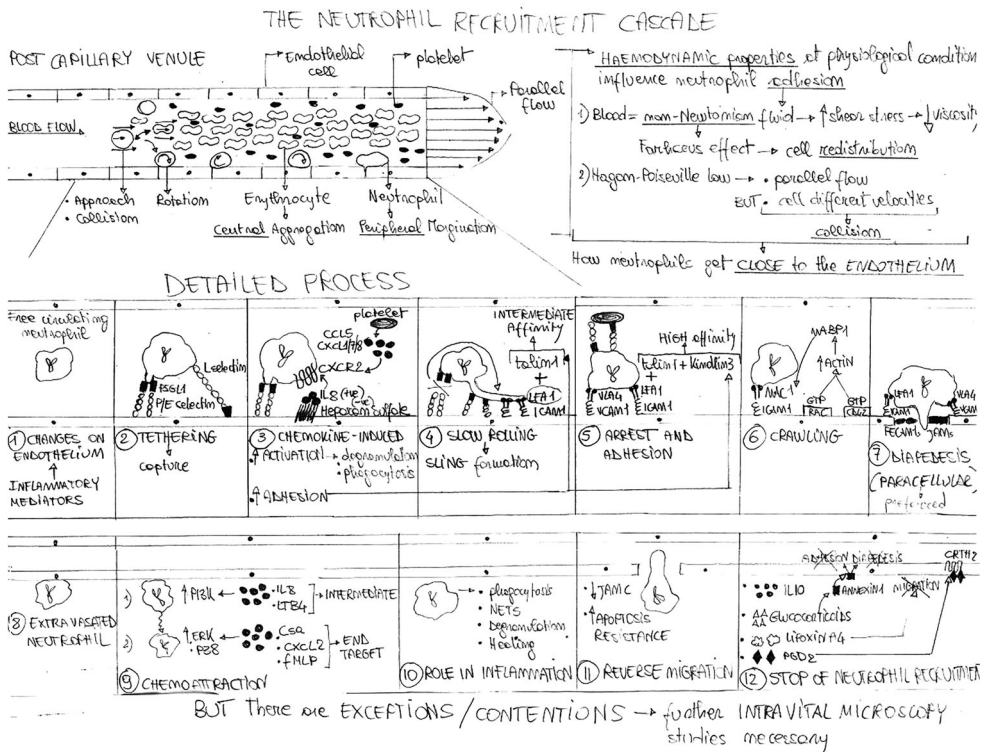 THE NEUTROPHIL RECRUITMENT CASCADE
POST CAPILLARY VENULE
Endothelial cell
platelet
Parallel flow
BLOOD FLOW
• Approach
• Collision
Rotation
Erythrocyte
Central Aggregation
Neutrophil
Peripheral Margination
HAEMODYNAMIC properties at physiological condition
influence neutrophil adhesion
1) Blood = non-Newtonian fluid → ↑ shear stress → ↓ viscosity
Farhceus effect → cell redistribution
2) Hagan-Poiseville law → • parallel flow
BUT • cell different velocities
collision
How neutrophils get CLOSE to the ENDOTHELIUM
DETAILED PROCESS
Free circulating
neutrophil
1 CHANGES ON
ENDOTHELIUM
INFLAMMATORY
MEDIATORS
L selectin
PSGL1
P/E selectin
2 TETHERING
capture
platelet
CCL5
CXCL1/7/8
CXCR2
IL8 (+ve)
(-ve)
Heparan sulfate
3 CHEMOKINE-INDUCED
↑ ACTIVATION → • degranulation
• phagocytosis
↑ ADHESION
INTERMEDIATE
Affinity
talin1
+
LFA1
ICAM1
4 SLOW ROLLING
SLING formation
HIGH affinity
talin1 + Kindlin3
+
VLA4 LFA1
VCAM1 ICAM1
5 ARREST AND
ADHESION
MABP1
↑ ACTIN
MAC1
ICAM1
GTP GTP
RAC1 CDC42
6 CRAWLING
LFA1 VLA4
ICAM1 VCAM1
PECAM1s JAMs
7 DIAPEDESIS
(PARACELLULAR)
preferred
8 EXTRAVASATED
NEUTROPHIL
1) ↑ PI3K
• IL8
• LTB4
INTERMEDIATE
2) ↑ ERK
• P38
C5a
• CXCL2
• fMLP
END
TARGET
9 CHEMOATTRACTION
• phagocytosis
• NETS
• Degranulation
• Healing
10 ROLE IN INFLAMMATION
↓ JAMC
↑ APOPTOSIS
RESISTANCE
11 REVERSE MIGRATION
ADHESION DIAPEDESIS
CRTH2
ANNEXIN1
MIGRATION
• IL10
• Glucocorticoids
• LipoxinA4
• PGD2
12 STOP OF NEUTROPHIL RECRUITMENT
BUT There are EXCEPTIONS/CONTENTIONS → further INTRAVITAL MICROSCOPY
studies necessary